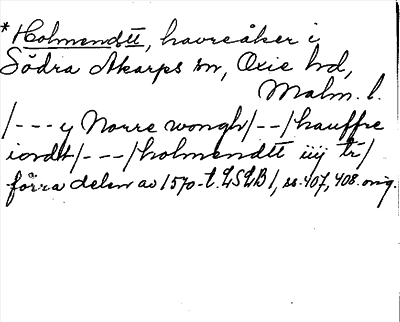 *Holmendtt, havreåker i
Södra Åkarps sn, Oxie hd,
Malm. l.
/---y Norre wongh/--/hauffre
iordt/---/holmendtt iiij tr/
förra delen av 1570-t. LSLB 1, ss. 407, 408. orig.